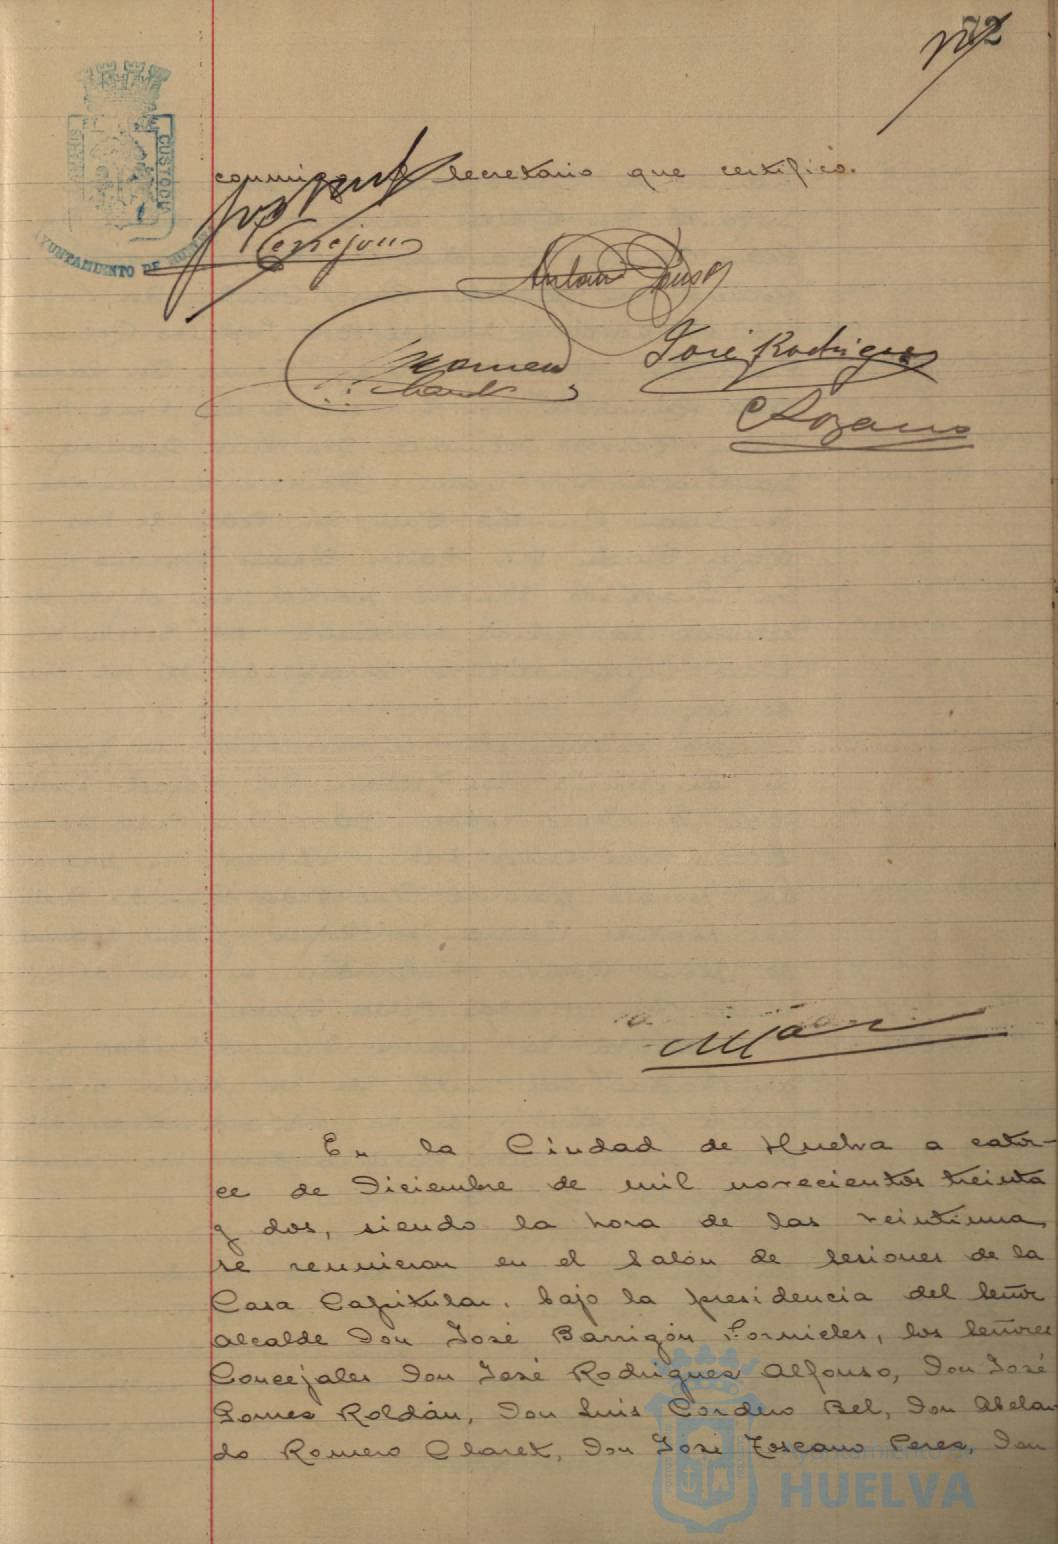 72
conmigo el Secretario que certifico.
PORTUS MARIS
CUSTODIA
AYUNTAMIENTO DE HUELVA
José Rodriguez
C Lozano
En la Ciudad de Huelva a cator-
ce de Diciembre de mil novecientos treinta
y dos, siendo la hora de las veintiuna,
se reunieron en el Salón de Sesiones de la
Casa Capitular, bajo la presidencia del Señor
Alcalde Don José Barrigón Fornieles, los Señores
Concejales Don José Rodriguez Alfonso, Don José
Gomez Roldán, Don Luis Cordero Bel, Don Abelar-
do Romero Claret, Don José Toscano Perez, Don
Ayuntamiento de
HUELVA